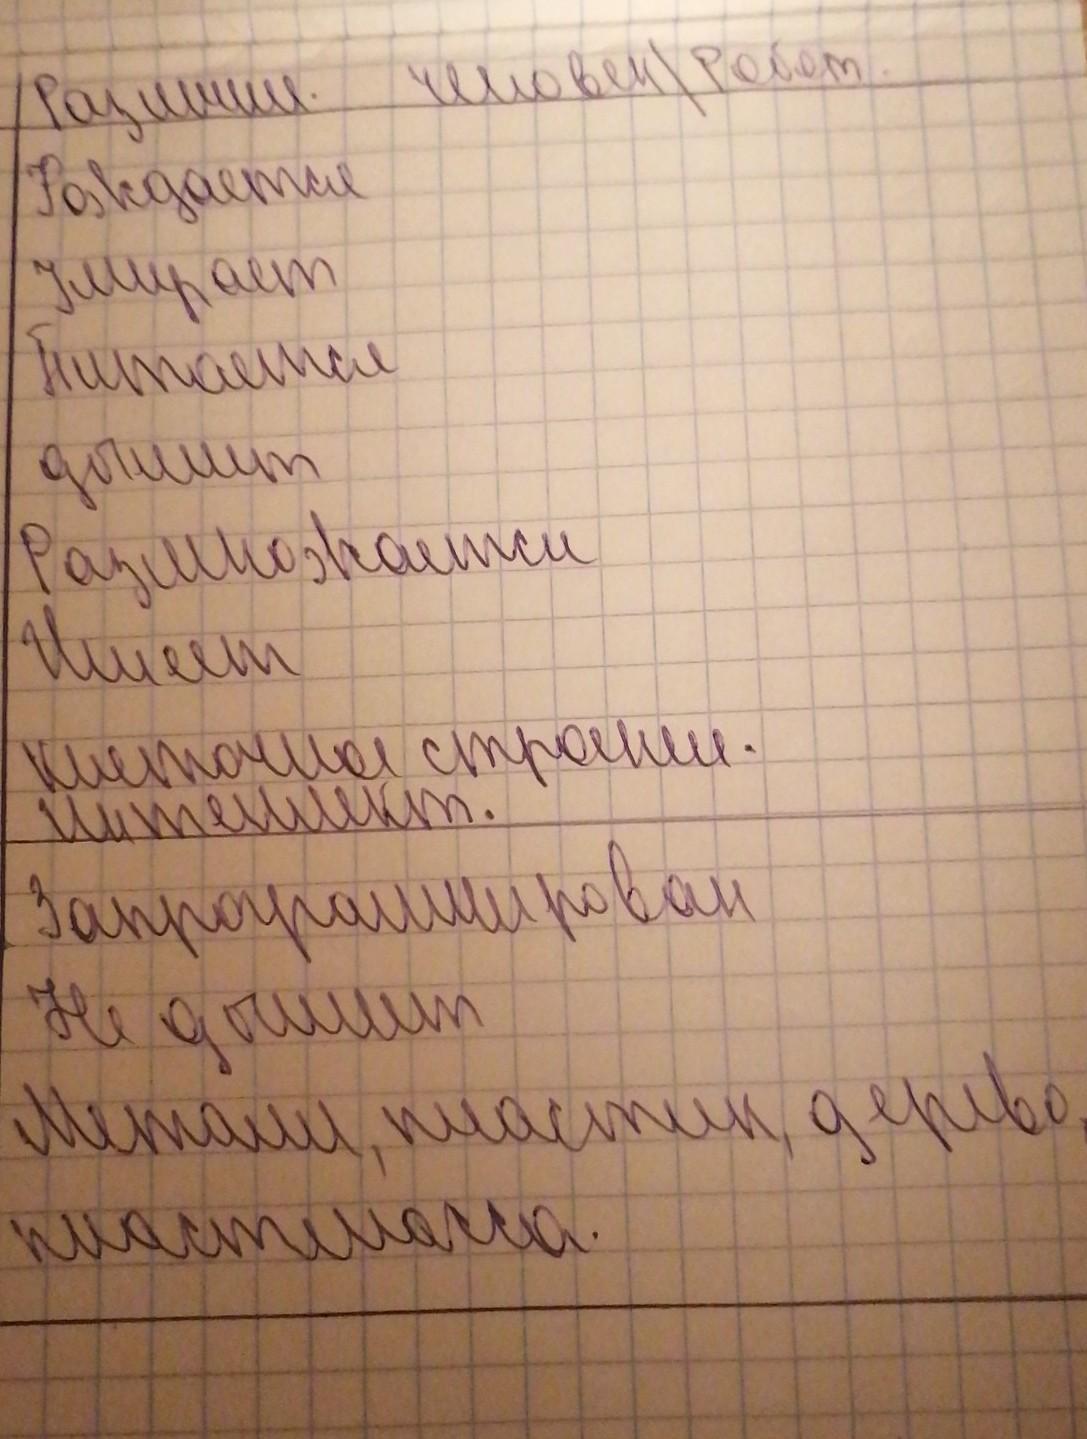 Различие. человек\Робот.
Рождается
Умирает
Питается
дышит
Размножается
Имеет
клеточное строение.
Интеллект.
Запрограммирован
Не дышит
Металл, пластик, дерево,
пластмасса.